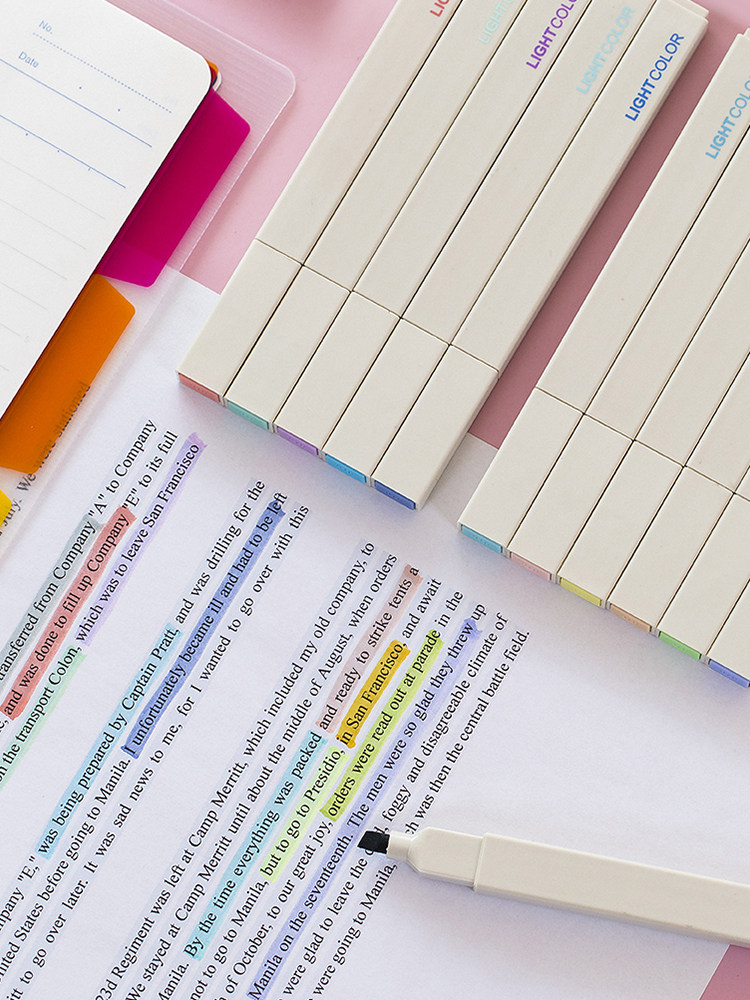 No.
Date
LIGHTCOLO
LIGHTCOLOR
LIGHTCOLOR
LIGHTCOLO
ransferred from Company "A" to Company
and was done to fill up Company "E" to its full
n the transport Colon, which was to leave San Francisco
mpany "E," was being prepared by Captain Pratt, and was drilling for the
nited States before going to Manila. I unfortunately became ill and had to be left
tt to go over later. It was sad news to me, for I wanted to go over with this
23d Regiment was left at Camp Merritt, which included my old company, to
We stayed at Camp Merritt until about the middle of August, when orders
Manila. By the time everything was packed and ready to strike tents a
not to go to Manila, but to go to Presidio, in San Francisco, and await
h of October, to our great joy, orders were read out at parade in the
Manila on the seventeenth. The men were so glad they threw up
were glad to leave the foggy and disagreeable climate of
were going to Manila, ch was then the central battle field.